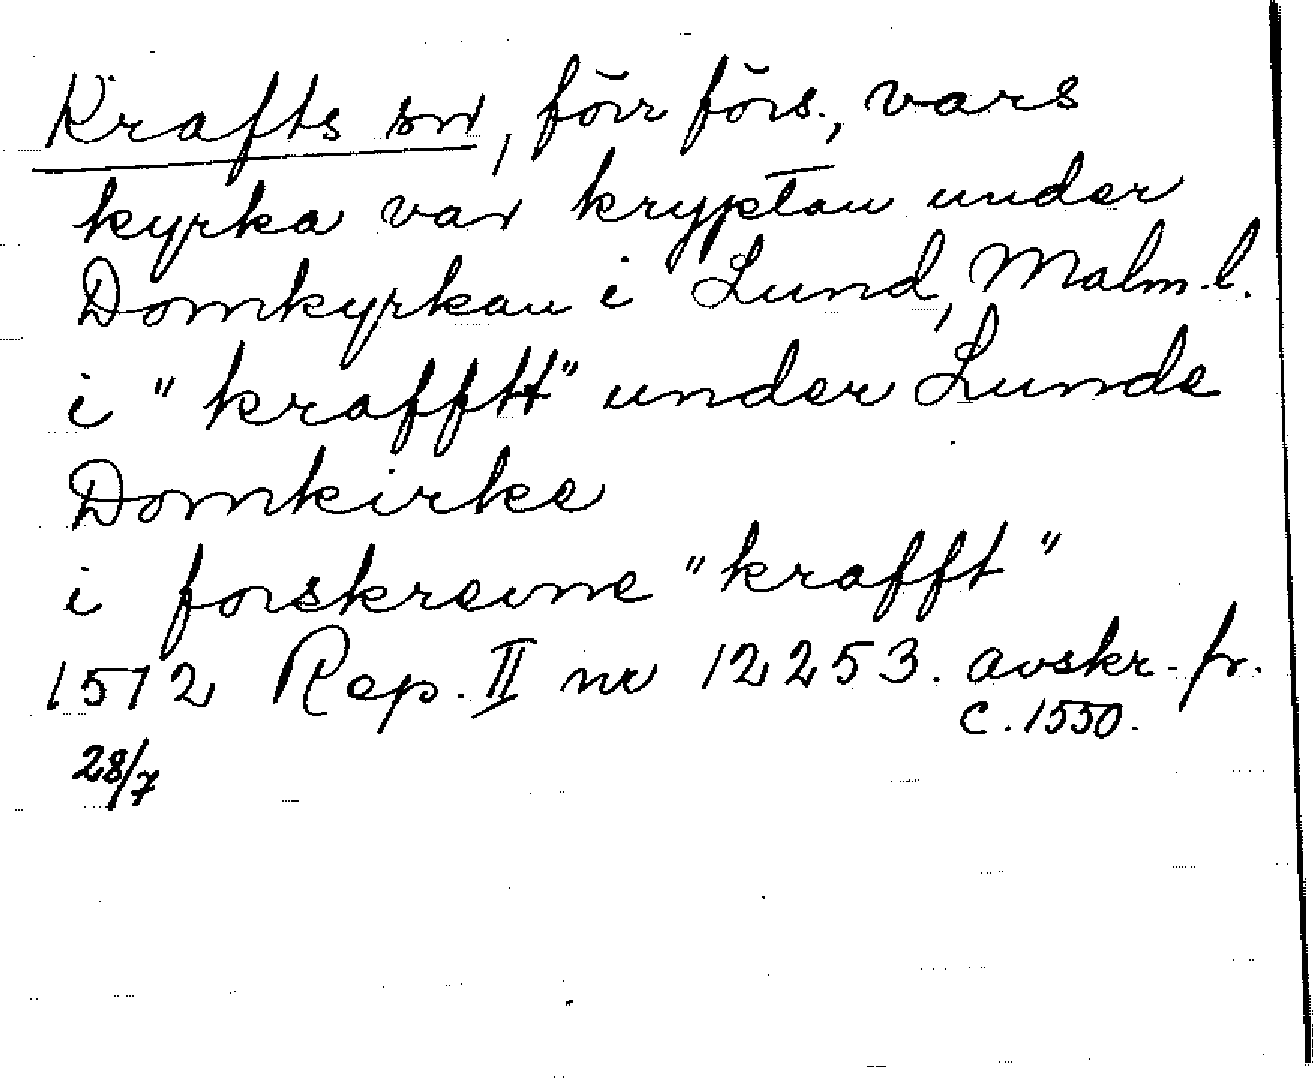 Krafts sn, förr förs., vars
kyrka var kryptan under
Domkyrkan i Lund, Malm. l.
i "krafftt" under Lunde
Domkirke
i forskrevne "krafft"
1512 Rep. II nr 12253. avskr. fr.
c. 1550.
28/7